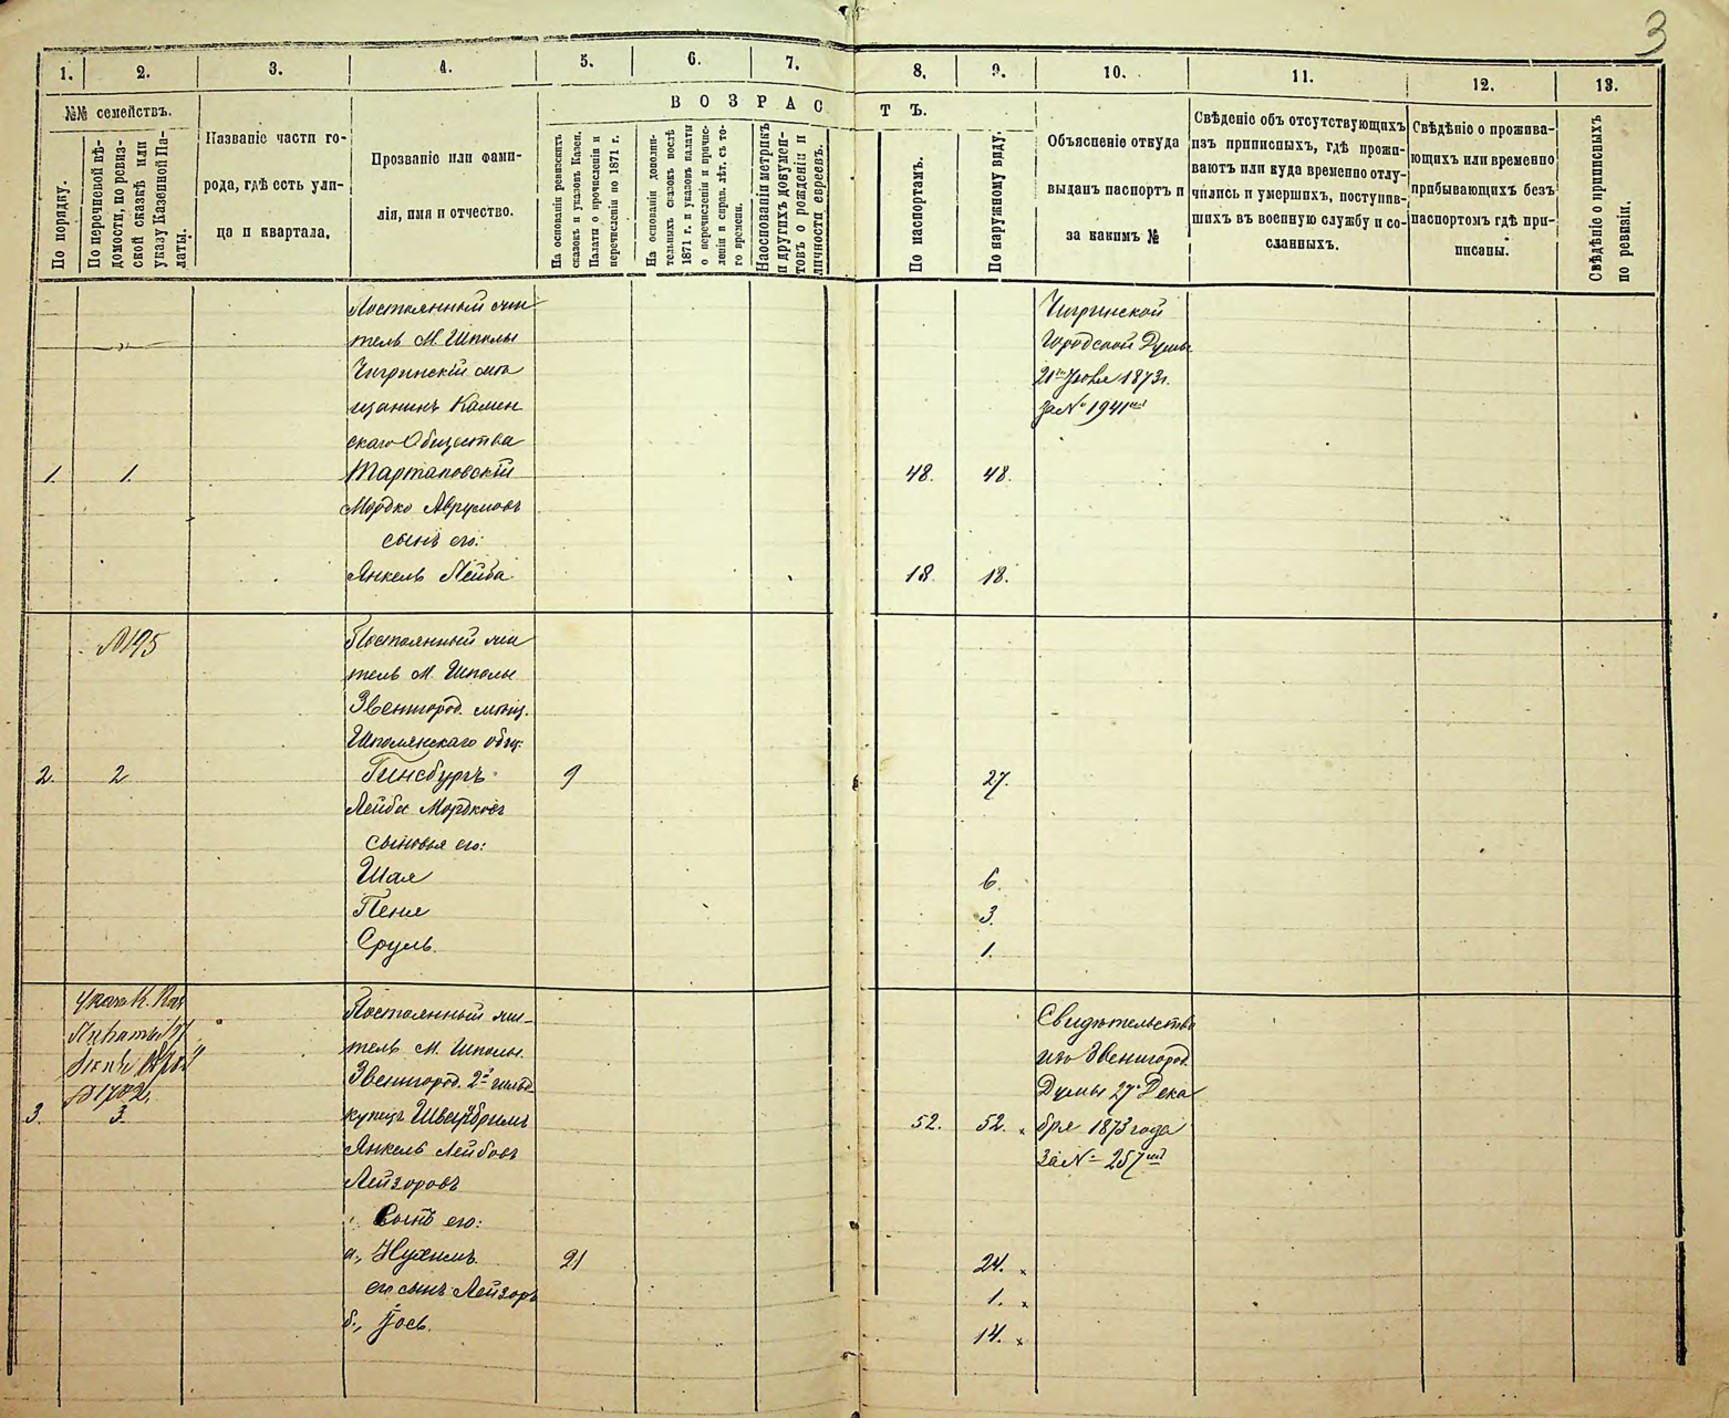 3
1.
2.
3.
4.
5.
6.
7.
8.
9.
10.
11.
12.
13.
№№ семействъ.
По порядку.
По перечневой вѣ-
домости, по ревиз-
ской сказкѣ или
указу Казенной Па-
латы.
Названіе части го-
рода, гдѣ есть ули-
ца и квартала.
Прозваніе или фами-
лія, имя и отчество.
ВОЗРАСТЪ.
На основаніи ревизскихъ
сказокъ и указовъ Казен.
Палаты о прочисленіи и
перечисленіи по 1871 г.
На основаніи дополни-
тельныхъ сказокъ послѣ
1871 г. и указовъ палаты
о перечисленіи и причис-
леніи и справ. лѣт. съ то-
го времени.
На основаніи метрикъ
и другихъ докумен-
товъ о рожденіи и
личности евреевъ.
По паспортамъ.
По наружному виду.
Объясненіе откуда
выданъ паспортъ и
за какимъ №
Свѣденіе объ отсутствующихъ
изъ приписныхъ, гдѣ прожи-
ваютъ или куда временно отлу-
чились и умершихъ, поступив-
шихъ въ военную службу и со-
сланныхъ.
Свѣдѣніе о прожива-
ющихъ или временно
прибывающихъ безъ
паспортовъ гдѣ при-
писаны.
Свѣдѣніе о приписныхъ
по ревизіи.
Постоянный жи
тель М. Шполы
Чигринскій мѣ
щанинъ Камен
скаго Общества
1. 1. Тартаповскій 48. 48.
Мордко Аврумовъ
сынъ его:
Янкель Лейба 18. 18.
Чигринской
Городской Думы
21го Июля 1873г.
за № 1941мъ
№195
Постоянный жи
тель М. Шполы
Звенигород. мѣщ.
Шполянскаго общ:
2. 2 Гинсбургъ 9 27.
Лейба Мордковъ
сыновья его:
Шая 6.
Пеня 3.
Сруль. 1.
Постоянный жи-
тель М. Шполы.
Звенигород. 2й гильд
3. 3. купецъ 52. 52.
Янкель Лейбовъ
Лейзоровъ
Сынъ его:
а., Нухимъ. 21 24.
его сынъ Лейзоръ 1.
б., Іось. 14.
Свидѣтельство
изъ Звенигород.
Думы 27 Дека
бря 1873 года
за № 257мъ